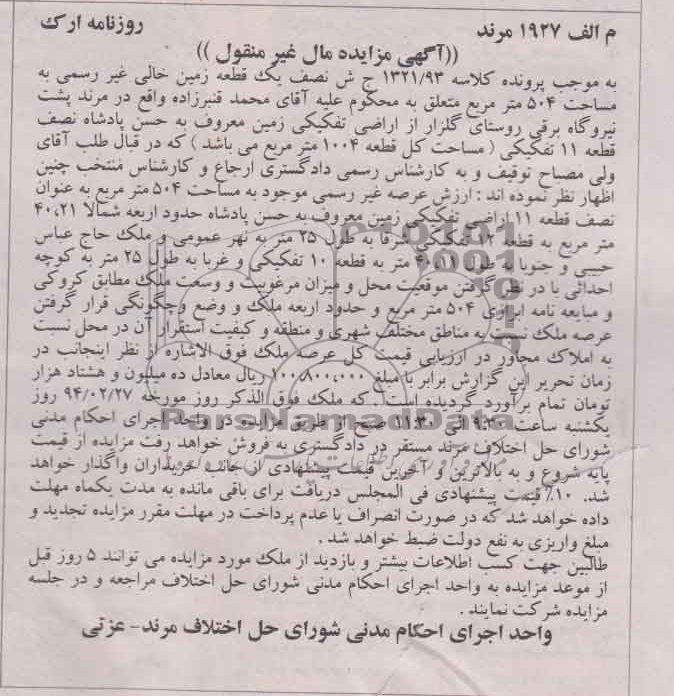 م الف ۱۹۲۷ مرند
روزنامه ارک
((آگهی مزایده مال غیر منقول))
به موجب پرونده کلاسه ۱۳۲۱/۹۳ ج ش نصف یک قطعه زمین خالی غیر رسمی به
مساحت ۵۰۴ متر مربع متعلق به محکوم علیه آقای محمد قنبرزاده واقع در مرند پشت
نیروگاه برقی روستای گلزار از اراضی تفکیکی زمین معروف به حسن پادشاه نصف
قطعه ۱۱ تفکیکی ( مساحت کل قطعه ۱۰۰۴ متر مربع می باشد ) که در قبال طلب آقای
ولی مصباح توقیف و به کارشناس رسمی دادگستری ارجاع و کارشناس منتخب چنین
اظهار نظر نموده اند : ارزش عرصه غیر رسمی موجود به مساحت ۵۰۴ متر مربع به عنوان
نصف قطعه ۱۱ اراضی تفکیکی زمین معروف به حسن پادشاه حدود اربعه شمالا ۴۰،۲۱
متر مربع به قطعه ۱۲ تفکیکی شرقا به طول ۲۵ متر به نهر عمومی و ملک حاج عباس
حبیبی و جنوبا به طول متر به قطعه ۱۰ تفکیکی و غربا به طول ۲۵ متر به کوچه
احداثی با در نظر گرفتن موقعیت محل و میزان مرغوبیت و وسعت ملک مطابق کروکی
و مبایعه نامه ابرازی ۵۰۴ متر مربع و حدود اربعه ملک و وضع و چگونگی قرار گرفتن
عرصه ملک نسبت به مناطق مختلف شهری و منطقه و کیفیت استقرار آن در محل نسبت
به املاک مجاور در ارزیابی قیمت کل عرصه ملک فوق الاشاره از نظر اینجانب در
زمان تحریر این گزارش برابر با مبلغ ۱۰۰،۸۰۰،۰۰۰ ریال معادل ده میلیون و هشتاد هزار
تومان تمام برآورد گردیده است . که ملک فوق الذکر روز مورخه ۹۴/۰۲/۲۷ روز
یکشنبه ساعت ۹:۳۰ الی ۱۱:۳۰ صبح از طریق مزایده در واحد اجرای احکام مدنی
شورای حل اختلاف مرند مستقر در دادگستری به فروش خواهد رفت مزایده از قیمت
پایه شروع و به بالاترین و آخرین قیمت پیشنهادی از جانب خریداران واگذار خواهد
شد. ۱۰٪ قیمت پیشنهادی فی المجلس دریافت برای باقی مانده به مدت یکماه مهلت
داده خواهد شد که در صورت انصراف یا عدم پرداخت در مهلت مقرر مزایده تجدید و
مبلغ واریزی به نفع دولت ضبط خواهد شد .
طالبین جهت کسب اطلاعات بیشتر و بازدید از ملک مورد مزایده می توانند ۵ روز قبل
از موعد مزایده به واحد اجرای احکام مدنی شورای حل اختلاف مراجعه و در جلسه
مزایده شرکت نمایند .
واحد اجرای احکام مدنی شورای حل اختلاف مرند- عزتی
ParsNamadData